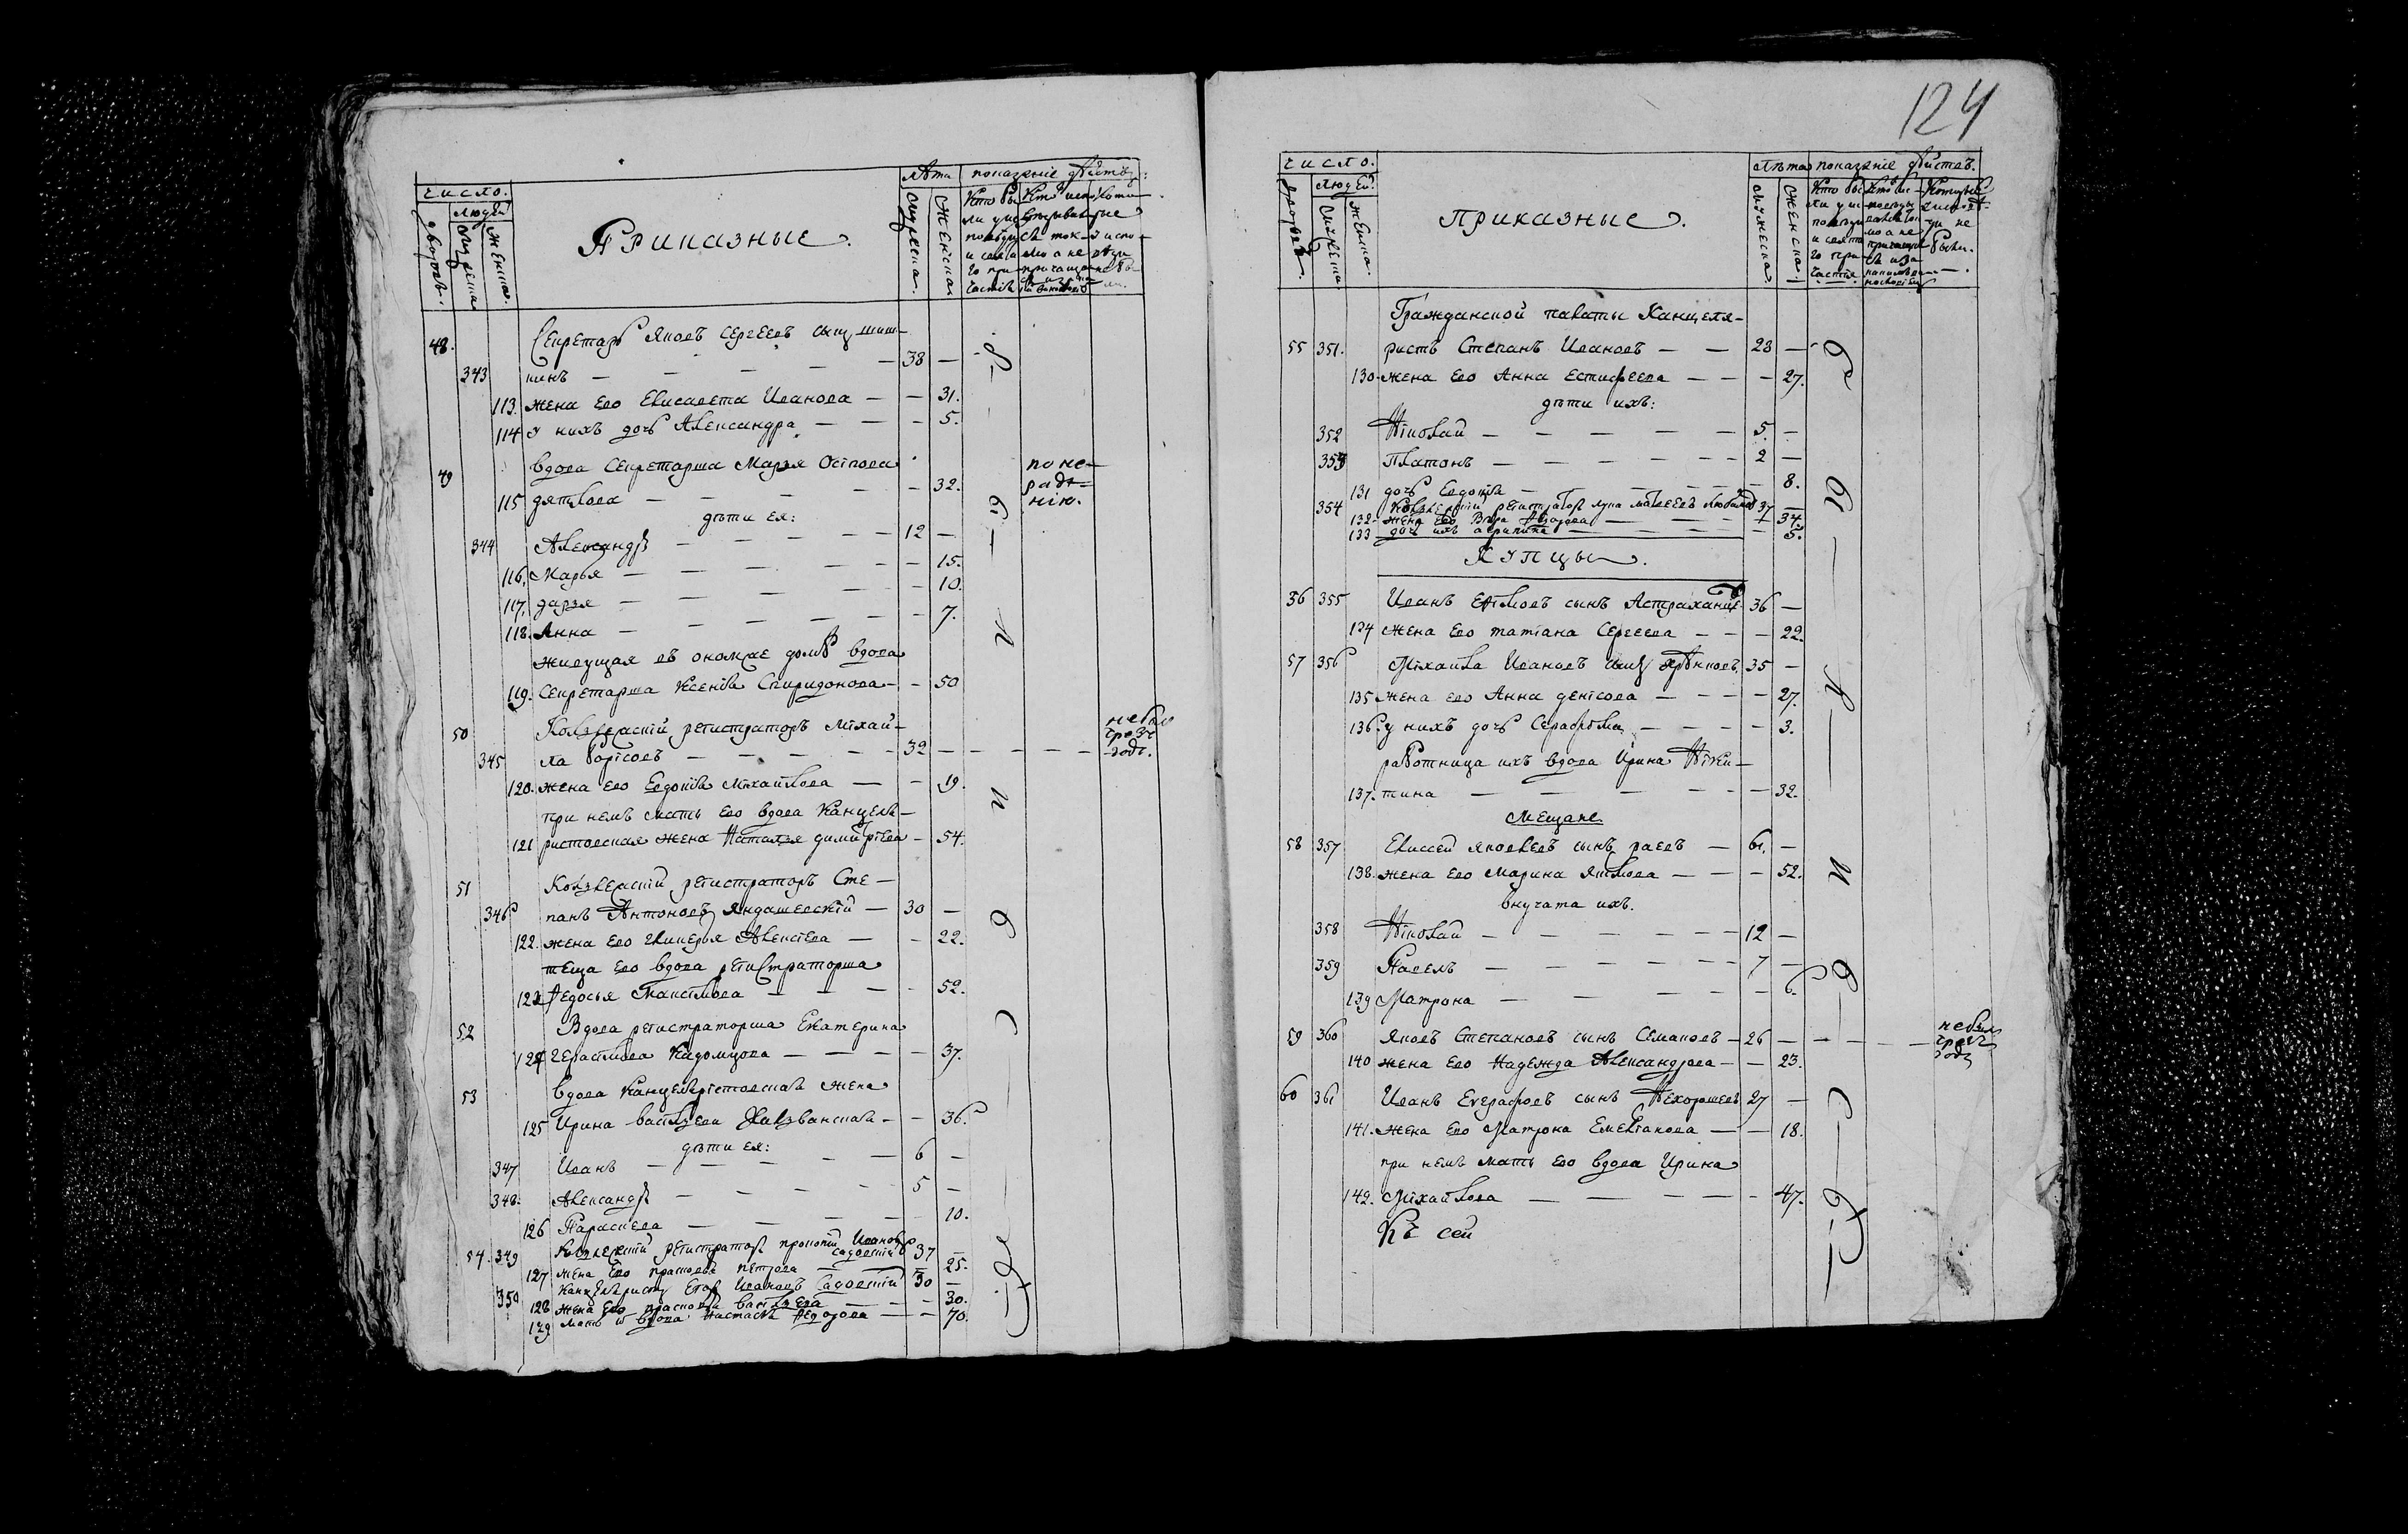 124
число.
людей
дворовъ.
мужеска
женска.
Приказные.
Лѣта
мужеска.
женска
показание действъ:
48.
Секретарь Яковъ Сергеевъ сынъ шиш-
343 кинъ — 38 —
113. жена Ево Елисавета Иванова — — 31.
114 У нихъ дочь Александра — — 5.
49 вдова Секретарша Марья Осiпова
115 дятлова — — 32.
по не-
радѣ-
нiю.
дѣти ея:
344 Александръ — 12 —
116. Марья — — 15.
117. дарья — — 10.
118. Анна — — 7.
живущая въ ономже домѣ вдова
119. Секретарша Ксенiя Спиридонова — — 50
50 Коллежскiй регистраторъ Мiхай-
345 ла борiсовъ — 32 —
небыл
чрезъ
годъ.
120. жена Ево Евдокiя Мiхайлова — — 19.
при немъ мать Ево вдова Канцеля-
121 ристовская жена Наталья димитрiева — 54.
51 Коллежскiй регистраторъ Сте-
346 панъ Антоновъ Яндашевскiй — 30 —
122. жена Ево Гликерья Алексiева — — 22.
теща Ево вдова регистраторша
123 Федосья Максiмова — — 52.
52 Вдова регистраторша Екатерина
124 Герасiмова Кадомцова — — 37.
53 вдова Канцелярiстовская жена
125 Ирина васiльева — 36.
дѣти ея:
347 Иванъ — 6 —
348. Александръ — 5 —
126 Парасковiа — — 10.
54. 349 Коллежскiй регистраторъ прокопiй Ивановъ
садовскiй 37
127 жена Ево петрова — 25.
350 Канцеляристъ Егоръ Ивановъ Садовскiй 30 —
128 жена Ево прасковья васiльева — — 30.
129 мать вдова Настасья Федорова — — 70.
число.
людей
дворовъ.
мужеска
женска.
Приказные.
Лѣта
мужеска
женска.
показание действъ.
Гражданской палаты Канцеля-
55 351. ристъ Степанъ Ивановъ — — 28 —
130. жена Ево Анна Естифеева — — — 27.
дѣти ихъ:
352 Нiколай — 5. —
353 Платонъ — 2 —
131 дочь Евдокiя — — 8.
354 Коллежскiй регистраторъ лука матвеевъ 37 —
132. жена Ево Вера — — 34.
133 дочь ихъ агрипина — — 5.
Купцы.
56 355 Иванъ Ефiмовъ сынъ Астраханцевъ 36 —
134 жена Ево татiана Сергеева — — — 22.
57 356 Мiхайла Ивановъ сынъ 35 —
135 жена ево Анна денiсова — — — 27.
136. у нихъ дочь Серафiма — — 3.
работница ихъ вдова Ирина Нiки-
137. тина — — 32.
Мещане
58 357 Елиссей яковлевъ сынъ раевъ — 61. —
138. жена Ево Марина Якiмова — — — 52.
внучата ихъ.
358 Нiколай — 12 —
359 Павелъ — 7 —
139 Матрона — — 6.
59 360 Яковъ Степановъ сынъ Семаковъ — 26 —
небыл
чрезъ
годъ
140 жена Ево Надежда Александрова — — 23.
60 361 Иванъ Евграфовъ сынъ Нехорошевъ 27 —
141. жена Ево Матрона Емелiанова — — 18.
при немъ мать Ево вдова Ирина
142. Мiхайлова — — 47.
Къ сей